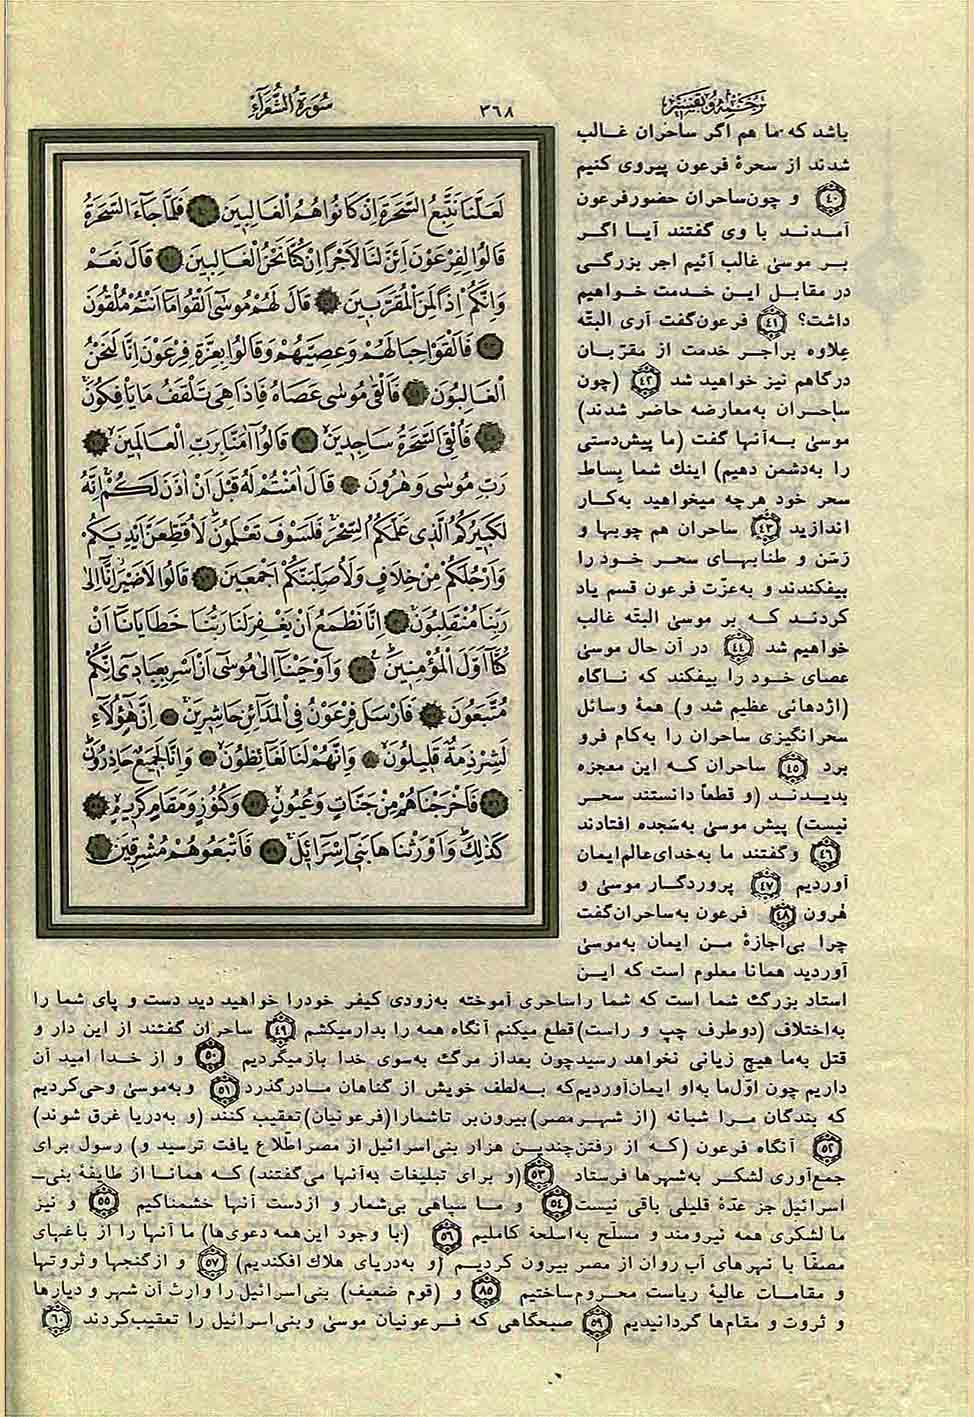 ترجمه و تفسیر
۳۶۸
سُورَةُ الشُّعَرَآءِ
لَعَلَّنَا نَتَّبِعُ السَّحَرَةَ اِنْ كَانُوا هُمُ الْغَالِبٖينَ ٤٠ فَلَمَّا جَآءَ السَّحَرَةُ
قَالُوا لِفِرْعَوْنَ اَئِنَّ لَنَا لَاَجْرًا اِنْ كُنَّا نَحْنُ الْغَالِبٖينَ ٤١ قَالَ نَعَمْ
وَاِنَّكُمْ اِذًا لَمِنَ الْمُقَرَّبٖينَ ٤٢ قَالَ لَهُمْ مُوسٰٓى اَلْقُوا مَٓا اَنْتُمْ مُلْقُونَ
٤٣ فَاَلْقَوْا حِبَالَهُمْ وَعِصِيَّهُمْ وَقَالُوا بِعِزَّةِ فِرْعَوْنَ اِنَّا لَنَحْنُ
الْغَالِبُونَ ٤٤ فَاَلْقٰى مُوسٰى عَصَاهُ فَاِذَا هِىَ تَلْقَفُ مَا يَاْفِكُونَ
٤٥ فَاُلْقِىَ السَّحَرَةُ سَاجِدٖينَ ٤٦ قَالُٓوا اٰمَنَّا بِرَبِّ الْعَالَمٖينَ ٤٧
رَبِّ مُوسٰى وَهٰرُونَ ٤٨ قَالَ اٰمَنْتُمْ لَهُ قَبْلَ اَنْ اٰذَنَ لَكُمْ اِنَّهُ
لَكَبٖيرُكُمُ الَّذٖى عَلَّمَكُمُ السِّحْرَ فَلَسَوْفَ تَعْلَمُونَ لَاُقَطِّعَنَّ اَيْدِيَكُمْ
وَاَرْجُلَكُمْ مِنْ خِلَافٍ وَلَاُصَلِّبَنَّكُمْ اَجْمَعٖينَ ٤٩ قَالُوا لَا ضَيْرَ اِنَّٓا اِلٰى
رَبِّنَا مُنْقَلِبُونَ ٥٠ اِنَّا نَطْمَعُ اَنْ يَغْفِرَ لَنَا رَبُّنَا خَطَايَانَٓا اَنْ
كُنَّٓا اَوَّلَ الْمُؤْمِنٖينَ ٥١ وَاَوْحَيْنَٓا اِلٰى مُوسٰٓى اَنْ اَسْرِ بِعِبَادٖٓى اِنَّكُمْ
مُتَّبَعُونَ ٥٢ فَاَرْسَلَ فِرْعَوْنُ فِى الْمَدَٓائِنِ حَاشِرٖينَ ٥٣ اِنَّ هٰٓؤُلَٓاءِ
لَشِرْذِمَةٌ قَلٖيلُونَ ٥٤ وَاِنَّهُمْ لَنَا لَغَٓائِظُونَ ٥٥ وَاِنَّا لَجَمٖيعٌ حَاذِرُونَ
٥٦ فَاَخْرَجْنَاهُمْ مِنْ جَنَّاتٍ وَعُيُونٍ ٥٧ وَكُنُوزٍ وَمَقَامٍ كَرٖيمٍ ٥٨
كَذٰلِكَ وَاَوْرَثْنَاهَا بَنٖٓى اِسْرَٓائٖلَ ٥٩ فَاَتْبَعُوهُمْ مُشْرِقٖينَ ٦٠
باشد که ما هم اگر ساحران غالب
شدند از سحرهٔ فرعون پیروی کنیم
٤٠ و چون ساحران حضور فرعون
آمدند با وی گفتند آیا اگر
بر موسیٰ غالب آئیم اجر بزرگی
در مقابل این خدمت خواهیم
داشت؟ ٤١ فرعون گفت آری البتّه
علاوه بر اجر خدمت از مقرّبان
درگاهم نیز خواهید شد ٤٢ (چون
ساحران به‌معارضه حاضر شدند)
موسیٰ به‌آنها گفت (ما پیش‌دستی
را به‌دشمن دهیم) اینك شما بساط
سحر خود هرچه میخواهید به‌کار
اندازید ٤٣ ساحران هم چوبها و
رَسَن و طنابهای سحر خود را
بیفکندند و به‌عزّت فرعون قسم یاد
کردند که بر موسیٰ البتّه غالب
خواهیم شد ٤٤ در آن حال موسیٰ
عصای خود را بیفکند که ناگاه
(اژدهائی عظیم شد و) همهٔ وسائل
سحرانگیزی ساحران را به‌کام فرو
برد ٤٥ ساحران که این معجزه
بدیدند (و قطعاً دانستند سحر
نیست) پیش موسیٰ به‌سَجده افتادند
٤٦ و گفتند ما به‌خدای عالم ایمان
آوردیم ٤٧ پروردگار موسیٰ و
هٰرون ٤٨ فرعون به‌ساحران گفت
چرا بی‌اجازهٔ من ایمان به‌موسیٰ
آوردید همانا معلوم است که این
استاد بزرگ شما است که شما را ساحری آموخته به‌زودی کیفر خود را خواهید دید دست و پای شما را
به‌اختلاف (دو طرف چپ و راست) قطع میکنم آنگاه همه را بدار میکشم ٤٩ ساحران گفتند از این دار و
قتل به‌ما هیچ زیانی نخواهد رسید چون بعد از مرگ به‌سوی خدا بازمیگردیم ٥٠ و از خدا امید آن
داریم چون اوّل ما به‌او ایمان آوردیم که به‌لطف خویش از گناهان ما درگذرد ٥١ و به‌موسیٰ وحی کردیم
که بندگان مرا شبانه (از شهر مصر) بیرون بر تا شما را (فرعونیان) تعقیب کنند (و به‌دریا غرق شوند)
٥٢ آنگاه فرعون (که از رفتن چندین هزار بنی‌اسرائیل از مصر اطّلاع یافت ترسید و) رسول برای
جمع‌آوری لشکر به‌شهرها فرستاد ٥٣ (و برای تبلیغات به‌آنها می‌گفتند) که همانا از طایفهٔ بنی‌ـ
اسرائیل جز عدّهٔ قلیلی باقی نیست ٥٤ و ما سپاهی بی‌شمار و از دست آنها خشمناکیم ٥٥ و نیز
ما لشکری همه نیرومند و مسلّح به‌اسلحهٔ کاملیم ٥٦ (با وجود این همه دعوی‌ها) ما آنها را از باغهای
مصفّا با نهرهای آب روان از مصر بیرون کردیم (و به‌دریای هلاك افکندیم) ٥٧ و از گنجها و ثروتها
و مقامات عالیهٔ ریاست محروم ساختیم ٥٨ و (قوم ضعیف) بنی‌اسرائیل را وارث آن شهر و دیارها
و ثروت و مقام‌ها گردانیدیم ٥٩ صبحگاهی که فرعونیان موسیٰ و بنی‌اسرائیل را تعقیب کردند ٦٠